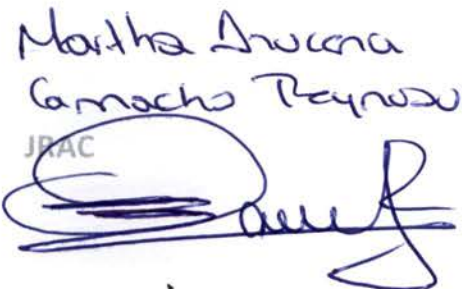 Martha Azucena
Camacho Reynoso
JRAC